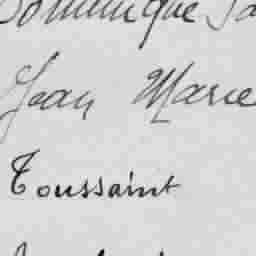 Dominique
Jean Marie
Toussaint